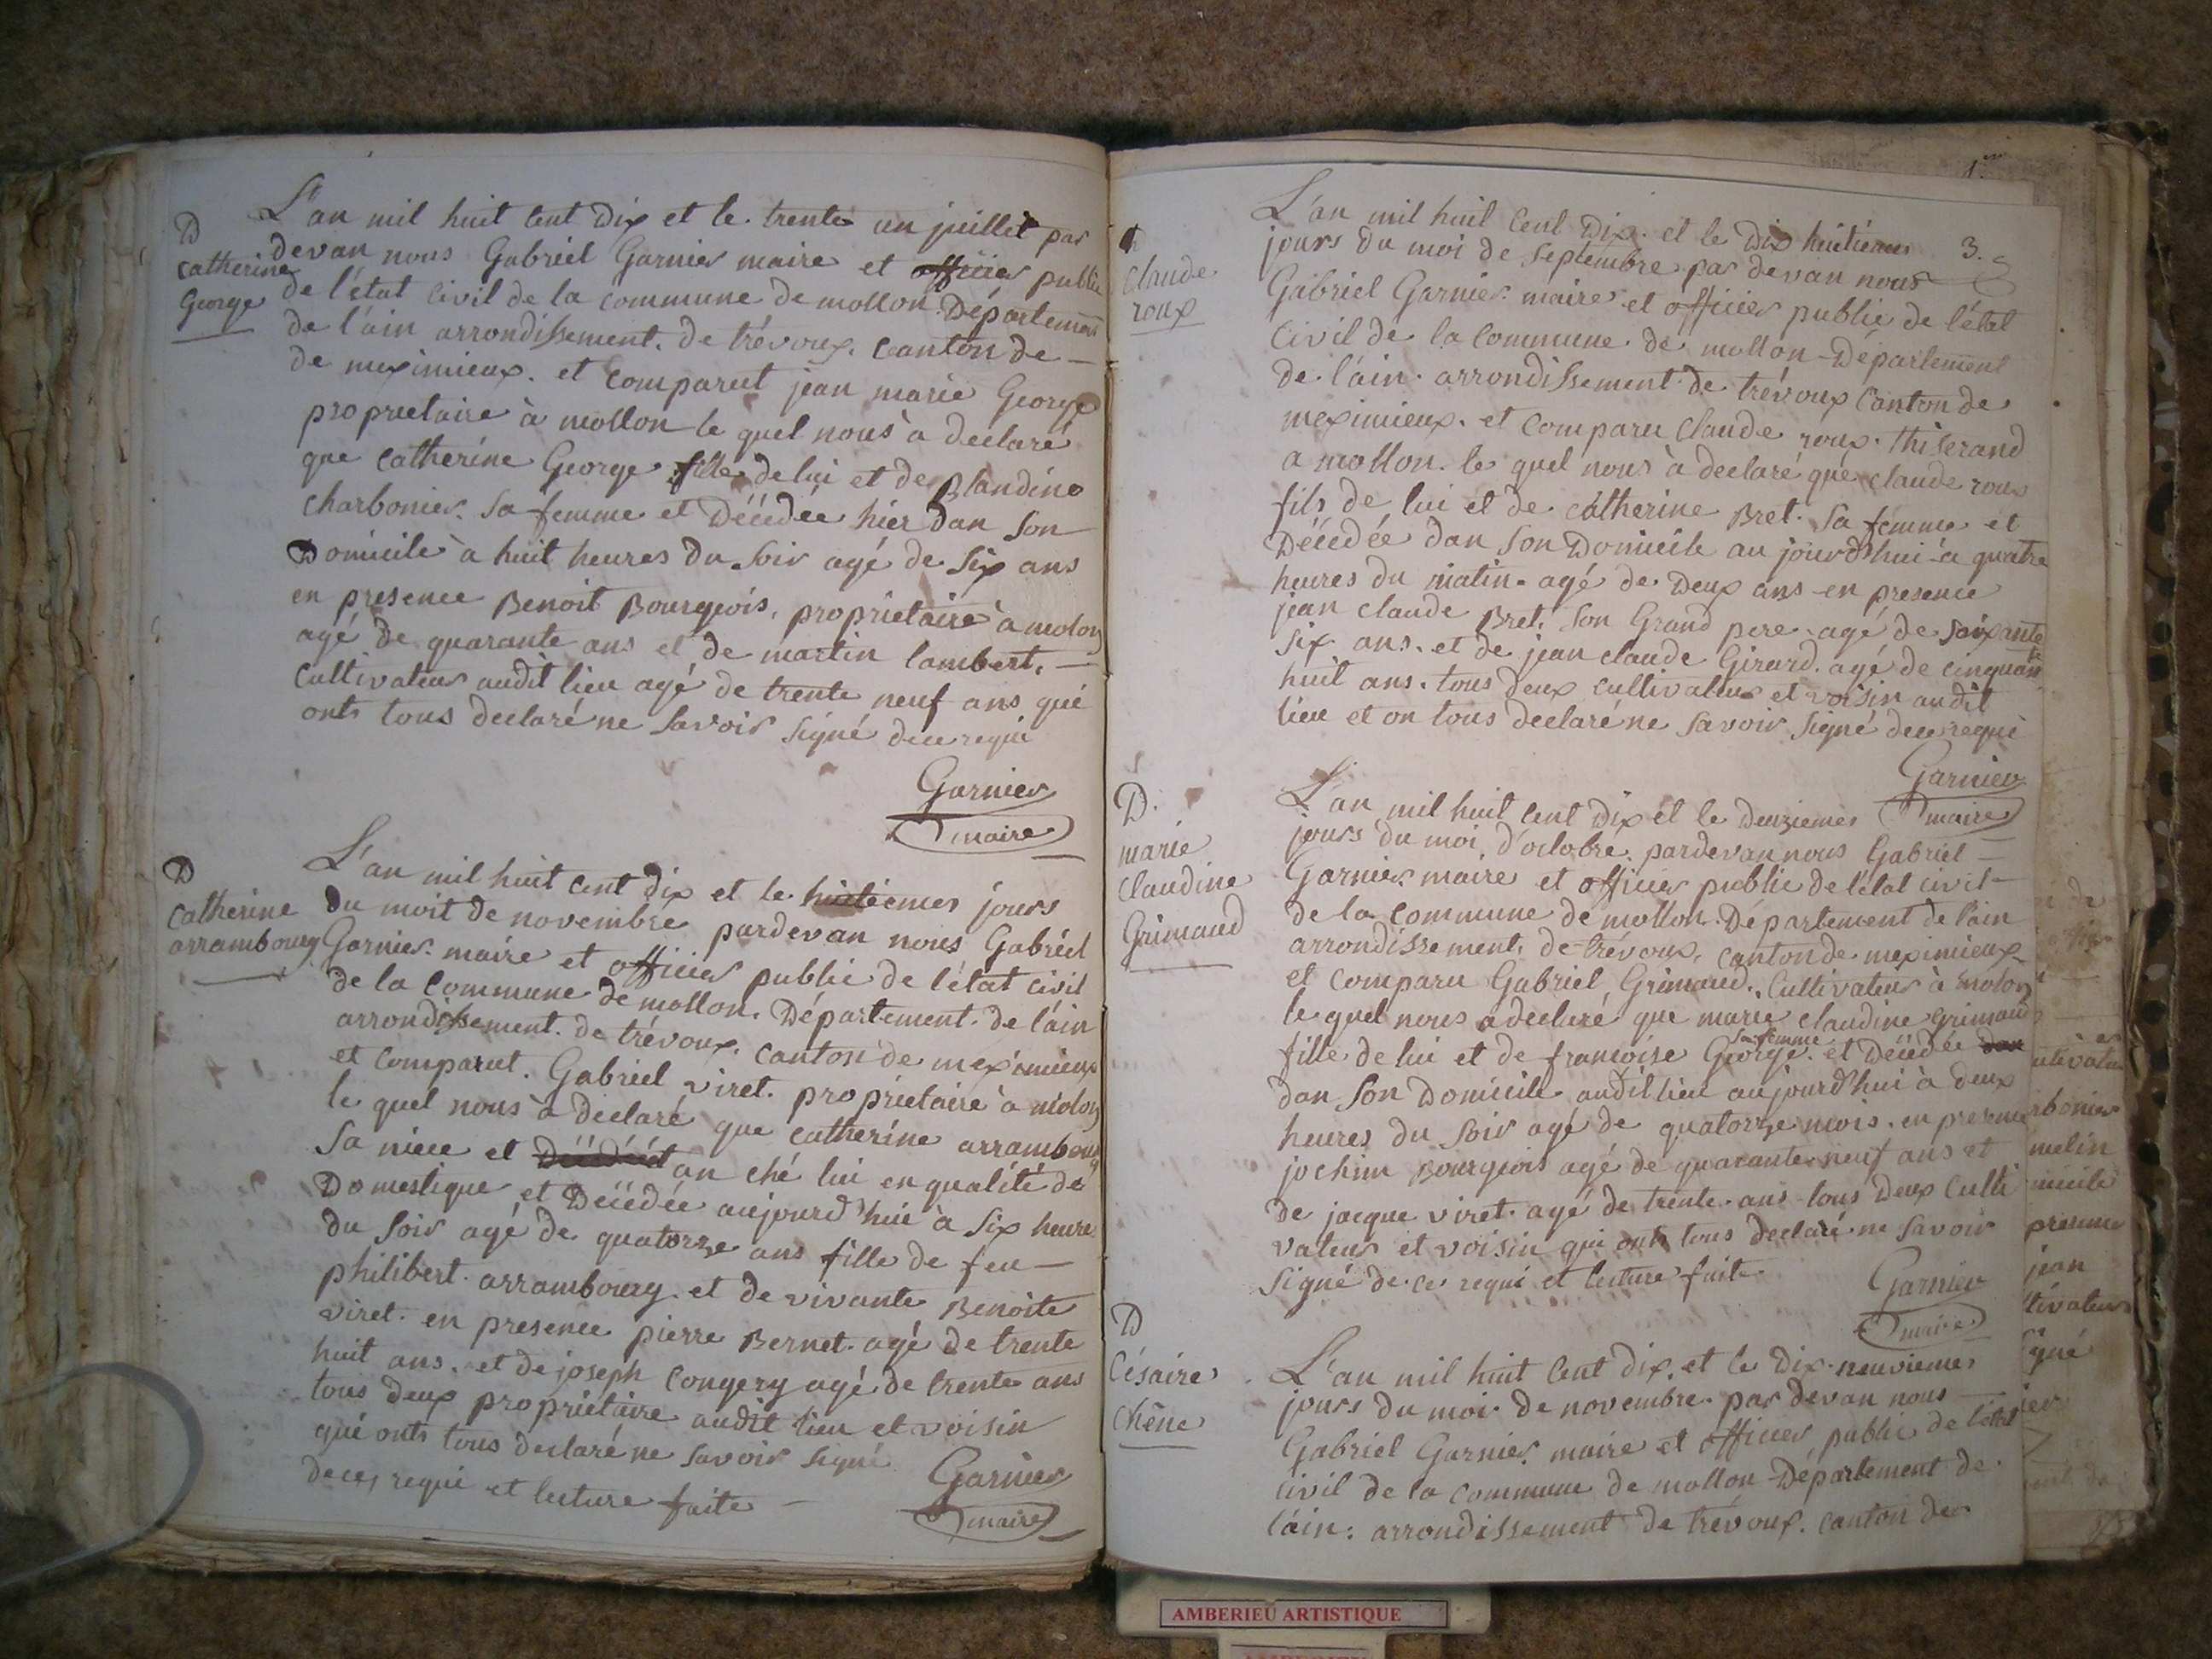 D
Catherine
George
L'an mil huit cent Dix et le trente un juillet par
devan nous Gabriel Garnier maire et officier public
de l'état Civil de la commune de mollon Département
de l'ain arrondissement. de trévoux. Canton de
de meximieux. et Comparut jean marie George
proprietaire à mollon le quel nous à declaré
que catherine George fille de lui et de Blandine
Charbonier. Sa femme et Décédée hier dan Son
Domicile à huit heures du Soir agé de Six ans
en presence Benoit Bourgeois, proprietaire à molon
agé de quarante ans et de martin lambert,
Cultivateur audit lieu agé de trente neuf ans qué
onts tous declaré ne Savoir Signé dece requi
Garnier
maire
D
Catherine
arrambourg
L'an mil huit cent dix et le huitiemes jours
du moit de novembre pardevan nous Gabriel
Garnier. maire et officier public de l'état civil
de la Commune de mollon. Département de l'ain
arrondissement. de trévoux. Canton de meximieux
et Comparut. Gabriel viret. proprietaire à molon
le quel nous à declaré que catherine arrambourg
Sa niece et an ché lui en qualité de
Domestique et Décédée aujourd'hui à Six heure
du Soir agé de quatorze ans fille de feu
philibert. arrambourg. et de vivante Benoite
viret. en presence pierre Bernet. agé de trente
huit ans. et de joseph Congery agé de trente ans
tous deux proprietaire audit lieu et voisin
qué onts tous declaré ne Savoir Signé
dece, requi et lecture faite
Garnier
maire
3.
Claude
roux
L'an mil huit Cent Dix. et le Dix huitiemes
jours du moi de Septembre par devan nous
Gabriel Garnier. maire et officier public de l'état
Civil de la Commune de mollon Département
de l'ain. arrondissement de trévoux Canton de
meximieux. et Comparu Claude roux. thiserand
a mollon. le quel nous à declaré qué Claude roux
fils de lui et de catherine Bret. Sa femme et
Décédée dan Son Domicile au jourd'hui à quatre
heures du matin. agé de Deux ans en presence
jean claude Bret. Son Grand pere. agé de Soixante
Six ans. et de jean claude Girard. agé de cinquante
huit ans. tous deux cultivateur et voisin audit
lieu et on tous declaré ne Savoir Signé dece requi
Garnier
maire
D.
marie
Claudine
Grimaud
L'an mil huit Cent Dix et le deuziemes
jours du moi d'octobre. pardevan nous Gabriel
Garnier. maire et officier public de l'état civil
de la Commune de mollon. Département de l'ain
arrondissement. de trevoux, canton de meximieux
et Comparu Gabriel Grimaud. Cultivateur à molon
le quel nous a declaré que marie claudine Grimaud
Sa femme
fille de lui et de francoise George. et Décédée dan
dan Son Domicile audit lieu aujourd'hui à deux
heures du Soir agé de quatorze mois. en presence
jochim Bourgeois agé de quarante neuf ans et
de jacque viret. agé de trente ans tous Deux Culti
vateur et voisin qui onts tous declaré ne Savoir
Signé de ce requi et lecture faite
Garnier
maire
D
Césaire
Chêne
L'an mil huit Cent dix. et le dix-neuviemes
jours du moi de novembre. par devan nous
Gabriel Garnier. maire et officier public de l'état
civil de la Commune de mollon Département de
l'ain. arrondissement de trévoux. Canton de
AMBERIEU ARTISTIQUE